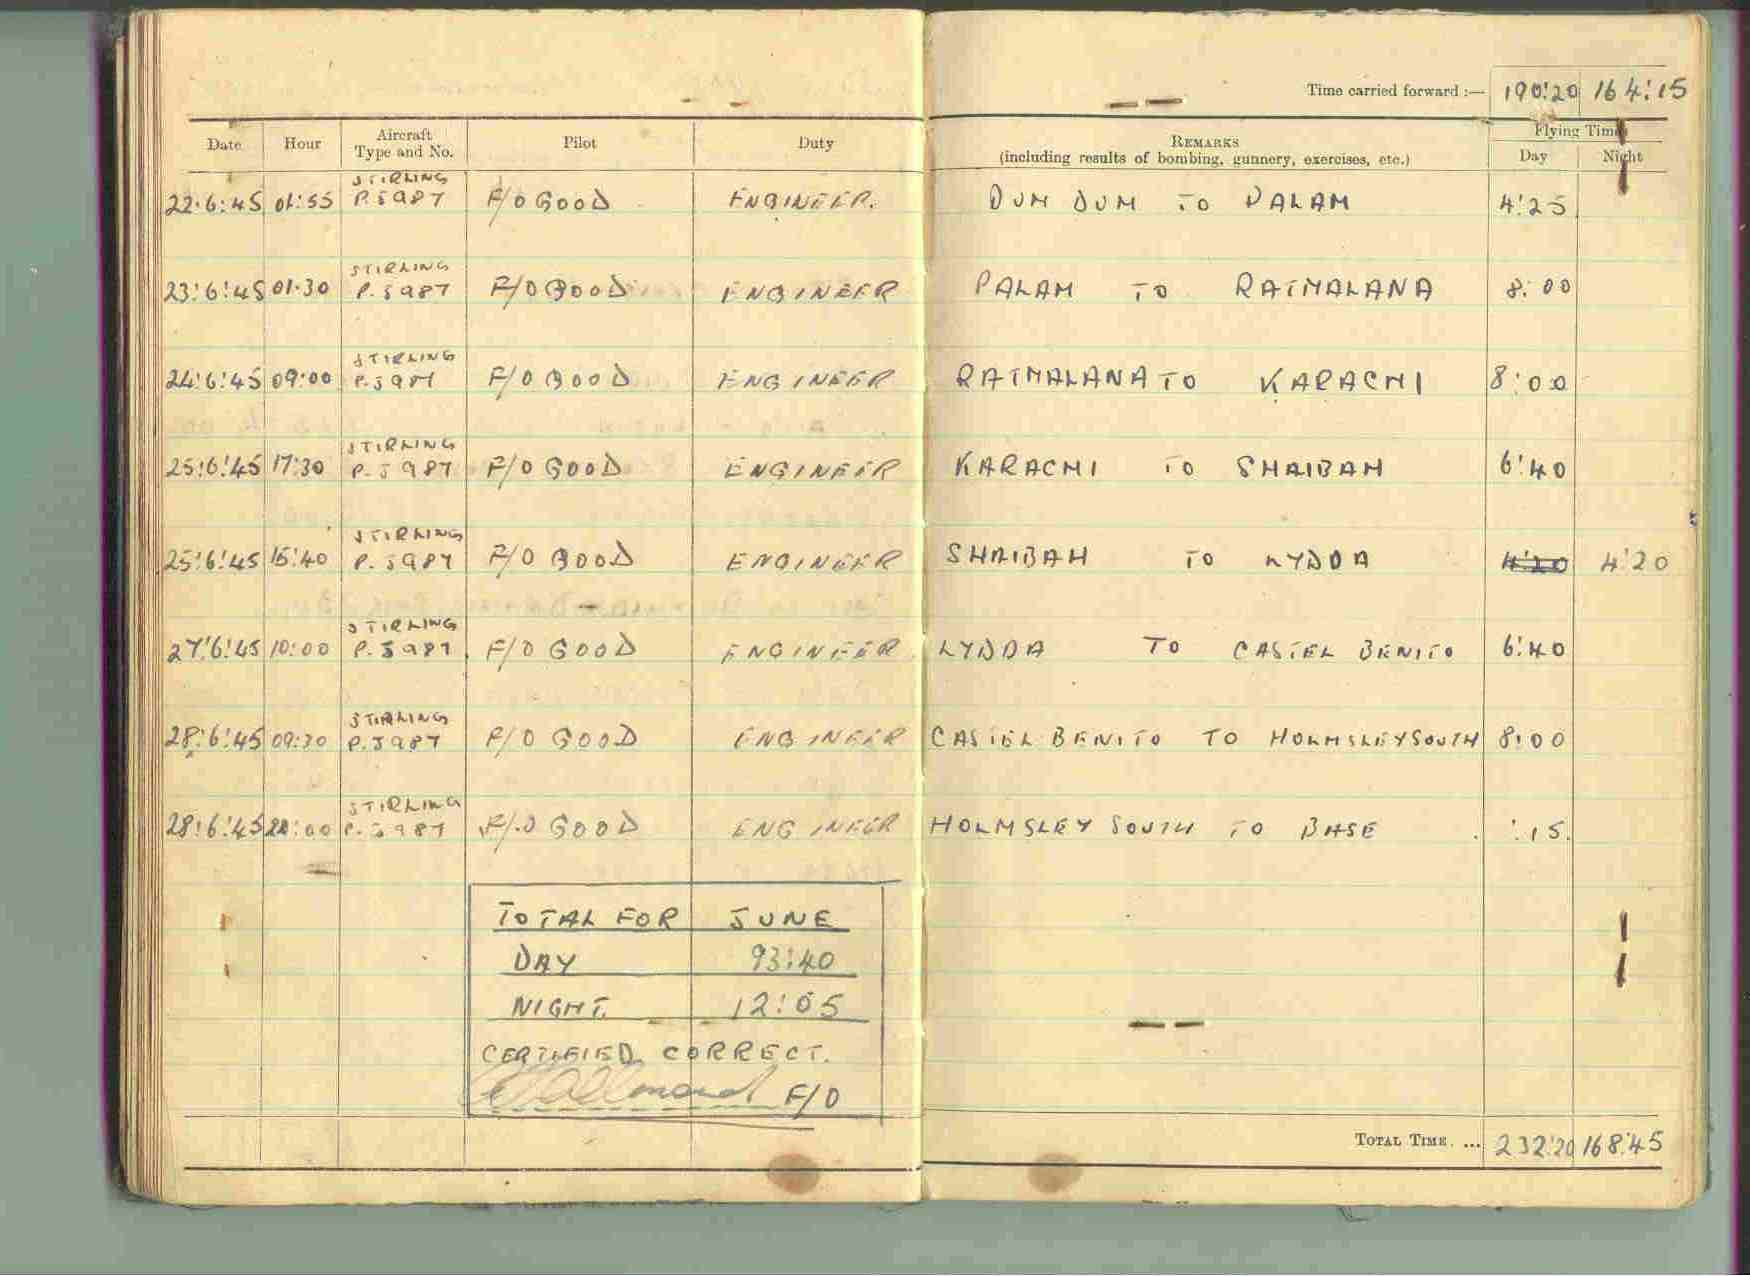 Time carried forward :— 190:20 164:15
Date Hour Aircraft Type and No. Pilot Duty REMARKS (including results of bombing, gunnery, exercises, etc.) Flying Times Day Night
22:6:45 01:55 STIRLING P.J987 F/O GOOD ENGINEER. DUM DUM TO PALAM 4:25
23:6:45 01.30 STIRLING P.J987 F/O GOOD ENGINEER PALAM TO RATMALANA 8:00
24:6:45 09:00 STIRLING P.J987 F/O GOOD ENGINEER RATMALANA TO KARACHI 8:00
25:6:45 17:30 STIRLING P.J987 F/O GOOD ENGINEER KARACHI TO SHAIBAH 6:40
25:6:45 15:40 STIRLING P.J987 F/O GOOD ENGINEER SHAIBAH TO LYDDA 4:20 4:20
27:6:45 10:00 STIRLING P.J987 F/O GOOD ENGINEER LYDDA TO CASTEL BENITO 6:40
28:6:45 09:30 STIRLING P.J987 F/O GOOD ENGINEER CASTEL BENITO TO HOLMSLEY SOUTH 8:00
28:6:45 STIRLING P.J987 F/O GOOD ENGINEER HOLMSLEY SOUTH TO BASE :15.
TOTAL FOR JUNE
DAY 93:40
NIGHT. 12:05
CERTIFIED CORRECT.
F/O
TOTAL TIME. ... 232:20 168:45